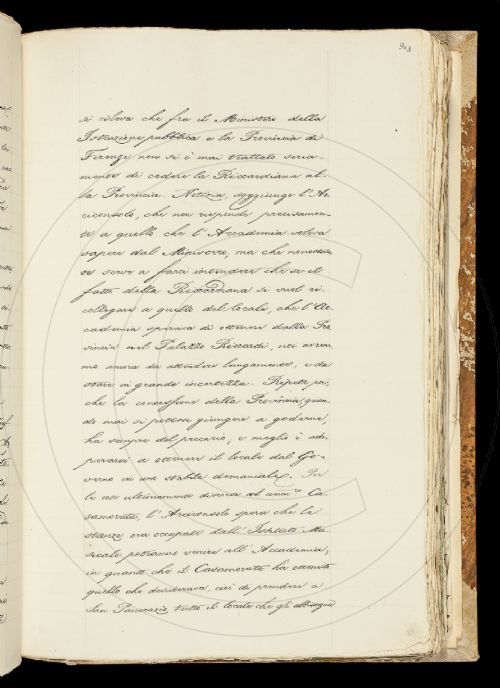 913
si rileva che fra il Ministero della
Istruzione pubblica e la Provincia di
Firenze non si è mai trattato seria-
mente di cedere la Riccardiana al-
la Provincia. Notizia, soggiunge l'Ar-
ciconsolo, che non risponde precisamen-
te a quello che l'Accademia voleva
sapere dal Ministero, ma che nonostan-
te serve a farci intendere che se il
fatto della Riccardiana si vuol ri-
collegare a quello del locale, che l'Ac-
cademia sperava di ottenere dalla Pro
vincia nel Palazzo Riccardi, noi avre-
mo ancora da attendere lungamente, e da
stare in grande incertezza. Ripete poi,
che la concessione della Provincia, quan-
do mai si potesse giungere a goderne,
ha sempre del precario, e meglio è ado-
perarsi a ottenere il locale dal Go-
verno in uno stabile demaniale. Per
le cose ultimamente discorse col comm.re Ca-
samorata, l'Arciconsolo spera che le
stanze ora occupate dall'Istituto Mu-
sicale potranno venire all'Accademia,
in quanto che il Casamorata ha ottenuto
quello che desiderava, cioè di prendere a
San Pancrazio tutto il locale che gli abbisogna